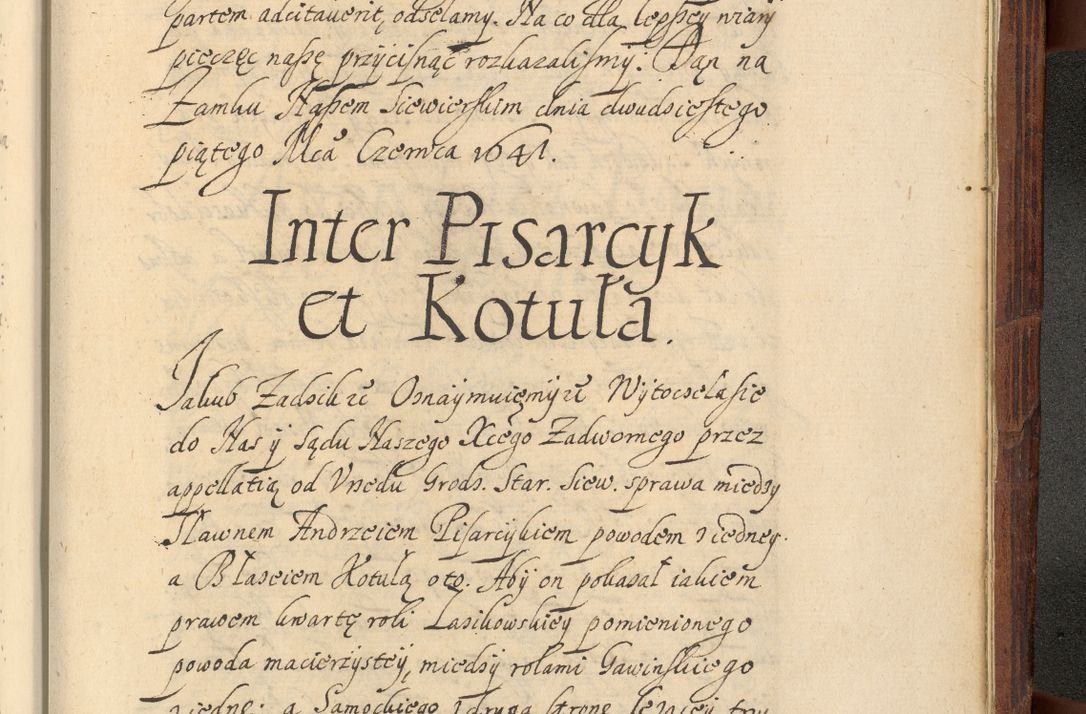 partem adcitaverit, odsełamy. Na co dla lepszey wiary
pieczęc naszę przycisnąć rozkazalismy. Dan na
Zamku Naszem Siewierskim dnia dwudziestego
piątego Mca Czerwca 1641.
Inter Pisarcyk
et Kotuła.
Jakub Zadzik etc Oznaymuięmy że Wytoczeła sie
do Nas y Sądu Naszego Xcego Zadwornego przez
appellatią od Vrzedu Grodz. Star. Siew. sprawa miedzy
Sławnem Andrzeiem Pisarcykiem powodem z iedney.
a Błazeiem Kotułą o to. Aby on pokazał iakiem
prawem kwartę roli Łazikowskiey pomienionego
powoda macierzystey, miedzy rolami Gawinskiego
z iedne: a Samockiego z drugą stronę leżący